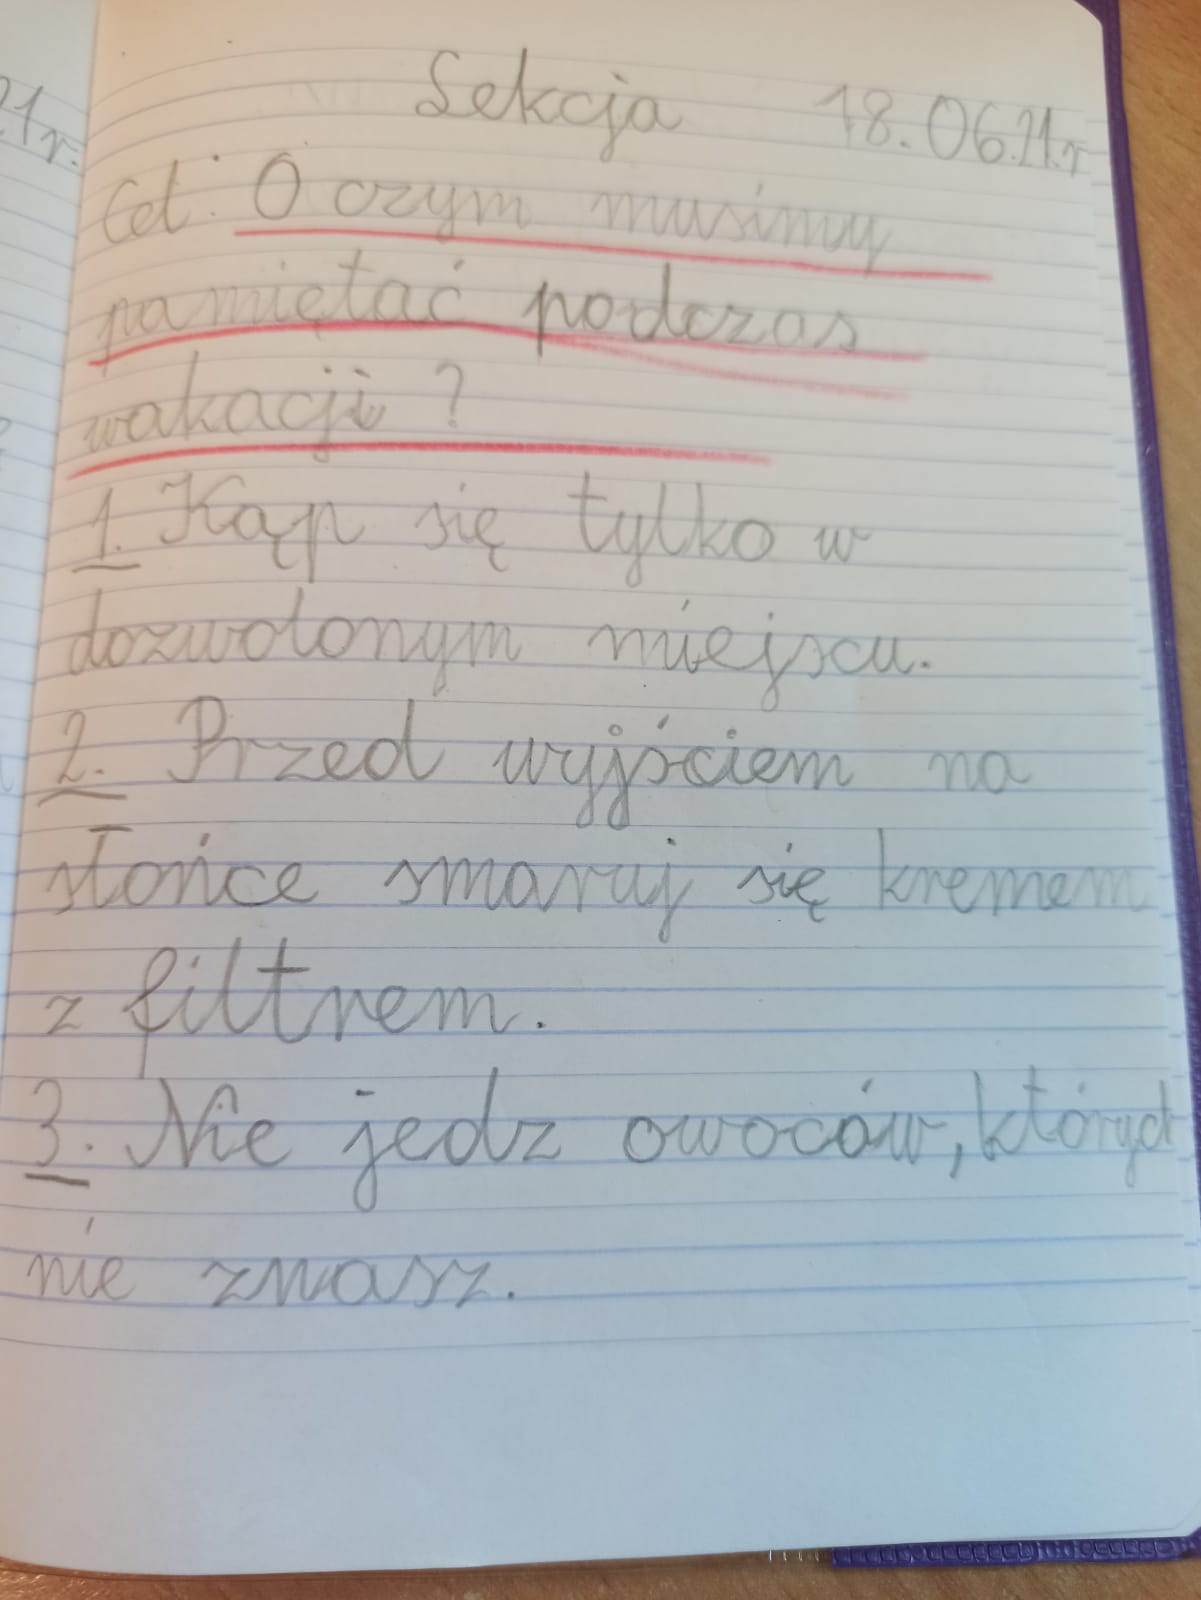 Lekcja 18.06.21.r
21r.
Cel: O czym musimy
pamiętać podczas
wakacji?
1. Kąp się tylko w
dozwolonym miejscu.
2. Przed wyjściem na
słońce smaruj się kremem
z filtrem.
3. Nie jedz owoców, których
nie znasz.